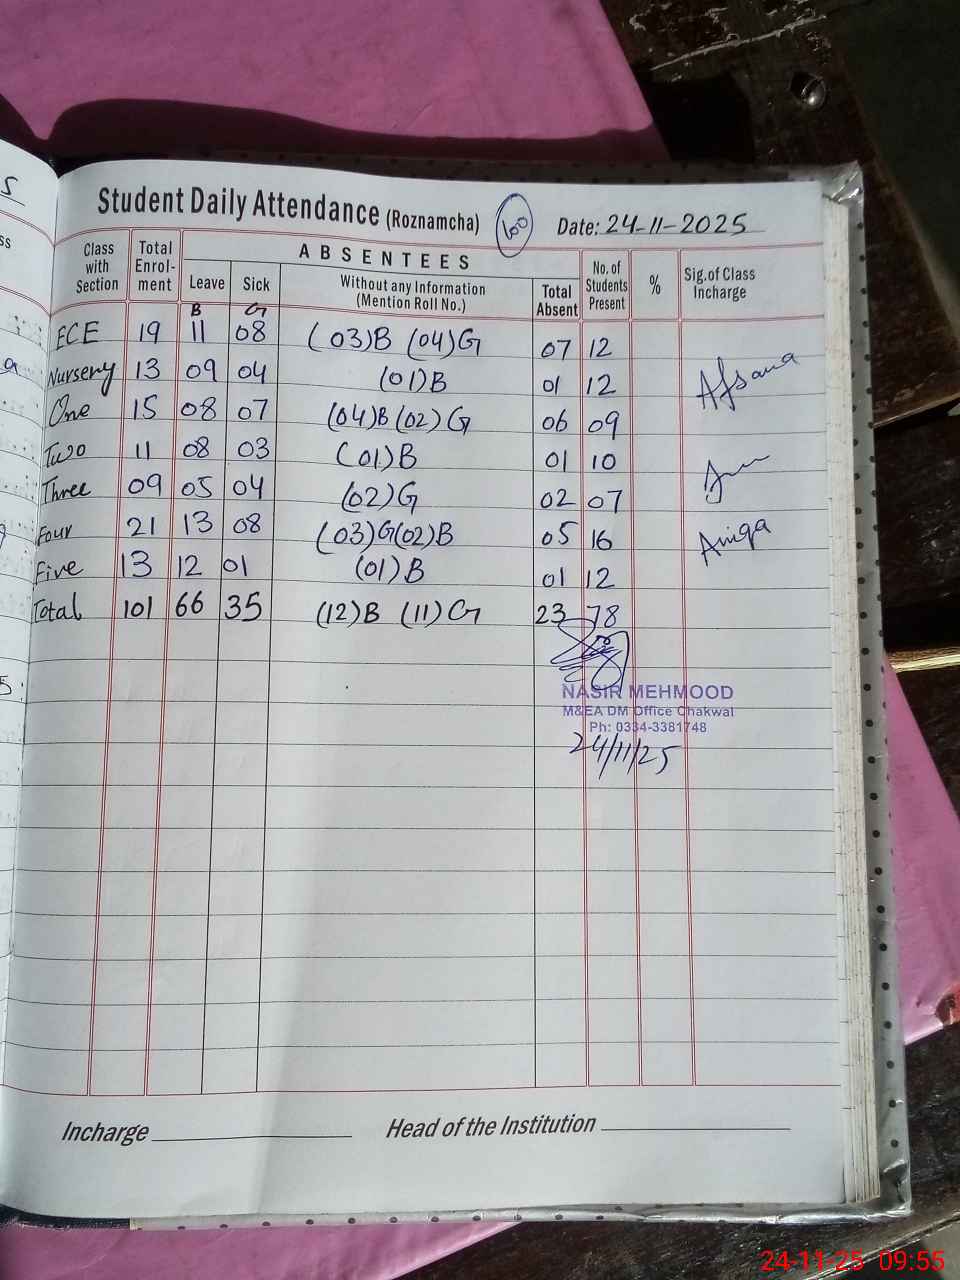 Student Daily Attendance (Roznamcha) 100 Date: 24-11-2025
Class with Section Total Enrol-ment ABSENTEES No. of Students Present % Sig. of Class Incharge
Leave Sick Without any Information (Mention Roll No.) Total Absent
B G
ECE 19 11 08 (03)B (04)G 07 12
Nursery 13 09 04 (01)B 01 12 Afsana
One 15 08 07 (04)B (02) G 06 09
Two 11 08 03 (01)B 01 10
Three 09 05 04 (02)G 02 07
Four 21 13 08 (03)G(02)B 05 16 Aniqa
Five 13 12 01 (01)B 01 12
Total 101 66 35 (12)B (11)G 23 78
NASIR MEHMOOD
M&EA DM Office Chakwal
Ph: 0334-3381748
24/11/25
Incharge Head of the Institution
24-11-25 09:55